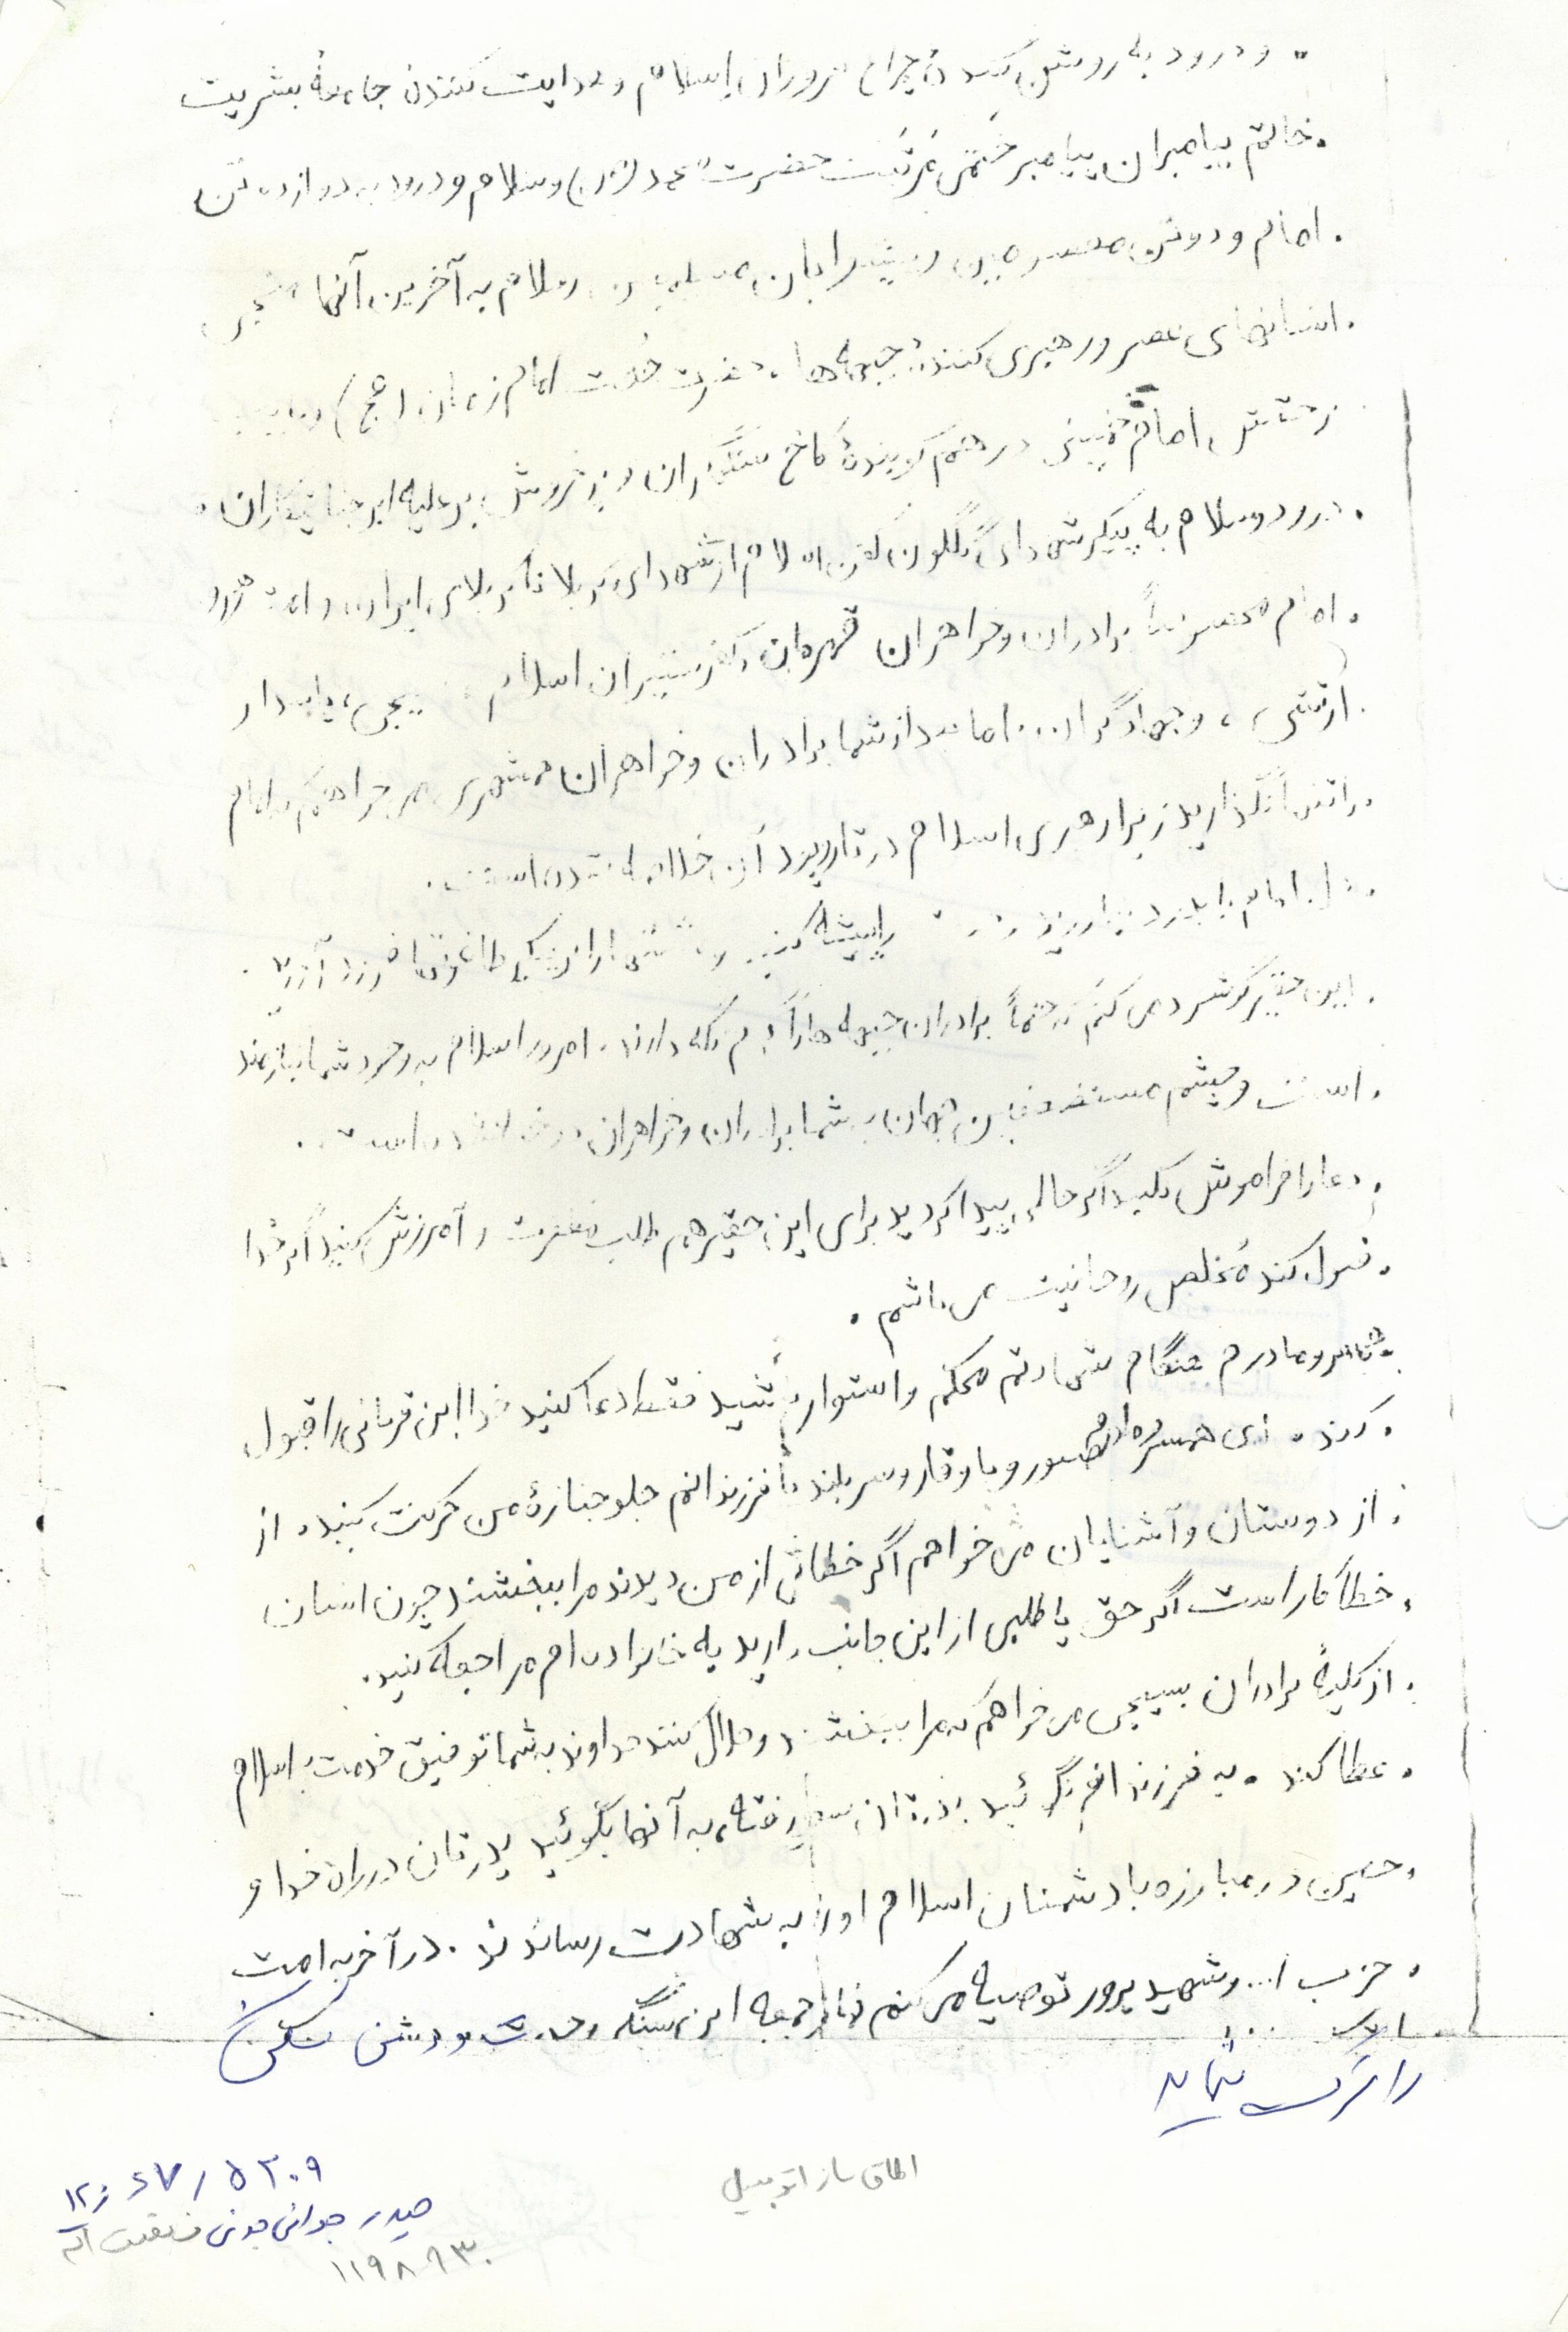 و درود به روشن کنندهٔ چراغ فروزان اسلام و هدایت کنندهٔ جامعهٔ بشریت
خاتم پیامبران پیامبر ختمی مرتبت حضرت محمد (ص) و سلام و درود به دوازده تن
امام و دو تن معصومین و پیشوایان مسلمین و سلام به آخرین آنها منجی
انسانهای عصر و رهبری کنندهٔ جبهه‌ها حضرت حجت امام زمان (عج) و نایب
بر حقش امام خمینی درهم کوبندهٔ کاخ ستمگران و پر خروش بر علیه ابر جنایتکاران
درود و سلام به پیکر شهدای گلگون کفن اسلام از شهدای کربلا تا کربلای ایران و
امام مخصوصاً برادران و خواهران قهرمان و کفرستیزان اسلام بسیجی، پاسدار
ارتشی، و جهادگران... اما بعد از شما برادران و خواهران همشهری می‌خواهم که امام
را تنها نگذارید زیرا رهبری اسلام در تاروپود آن خلاصه شده است.
امام را پیشه کنید و
این حقیر گوشزد می کنم که حتماً برادران جبهه ها را گرم نگه دارند. امروز اسلام به وجود شما نیازمند
است و چشم مستضعفین جهان به شما برادران و خواهران دوخته شده است.
دعا را فراموش نکنید اگر حالی پیدا کردید برای این حقیر هم طلب مغفرت و آمرزش کنید اگر خدا
قبول کند مخلص روحانیت می باشم.
پدر و مادرم هنگام شهادتم محکم و استوار باشید فقط دعا کنید خدا این قربانی را قبول
کند. همسرم صبور و با وقار و سربلند با فرزندانم جلو جنازهٔ من حرکت کنید. از
از دوستان و آشنایان می خواهم اگر خطائی از من دیدند مرا ببخشند چون انسان
خطاکار است اگر حق یا طلبی از این جانب دارید به خانواده ام مراجعه کنید.
از کلیهٔ برادران بسیجی می خواهم که مرا ببخشند و حلال کنند خداوند به شما توفیق خدمت به اسلام
عطا کند. به فرزندانم نگوئید پدرتان سفر رفته، به آنها بگوئید پدرتان در راه خدا و
حسین در مبارزه با دشمنان اسلام او را به شهادت رساندند. در آخر به امت
حزب ا... و شهید پرور توصیه می کنم نماز جمعه این سنگر وحدت و دشمن شکن
را ترک ننمایند
اطاق ساز اتومبیل
حیدر جوانی جونی
۱۱۹۸۹۳۰